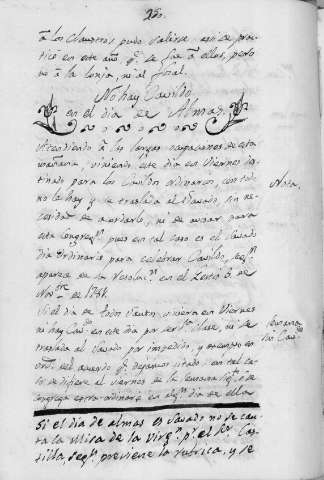 250.
á los Claustros pudo salirse: así se prac-
ticó en este año qe. se fue á ellos, pero
no á la lonja, ni al final.
No hay Cavildo
en el dia de Almas.
Atendiendo á las largas ocupaciones de esta
mañana, viniendo este dia en Viernes des-
tinado para los Cavildos ordinarios, con todo
no la hay y se traslada al Savado, sin ne-
cesidad de acordarlo, ni de avisar para
esta Congregn. pues en tal caso es el Savado
dia Ordinario para celebrar Cavildo, segn.
aparece de la Resolucn. en el
Novre. de 1751.
Nota.
Si el dia de todos Santos, viniera en Viernes
ni hay Cavdo. en este dia por ser
traslada al Savado por impedido, y
del acuerdo qe. dejamos citado: en tal ca-
so se difiere al viernes de la semana sigte. ó se
congrega extra-ordinario en algn. dia de ella
Si el dia de almas es Savado no se can-
ta la Misa de la Virgn. pr. el Sor. Cas-
tilla, segn. previene la rubrica, y se